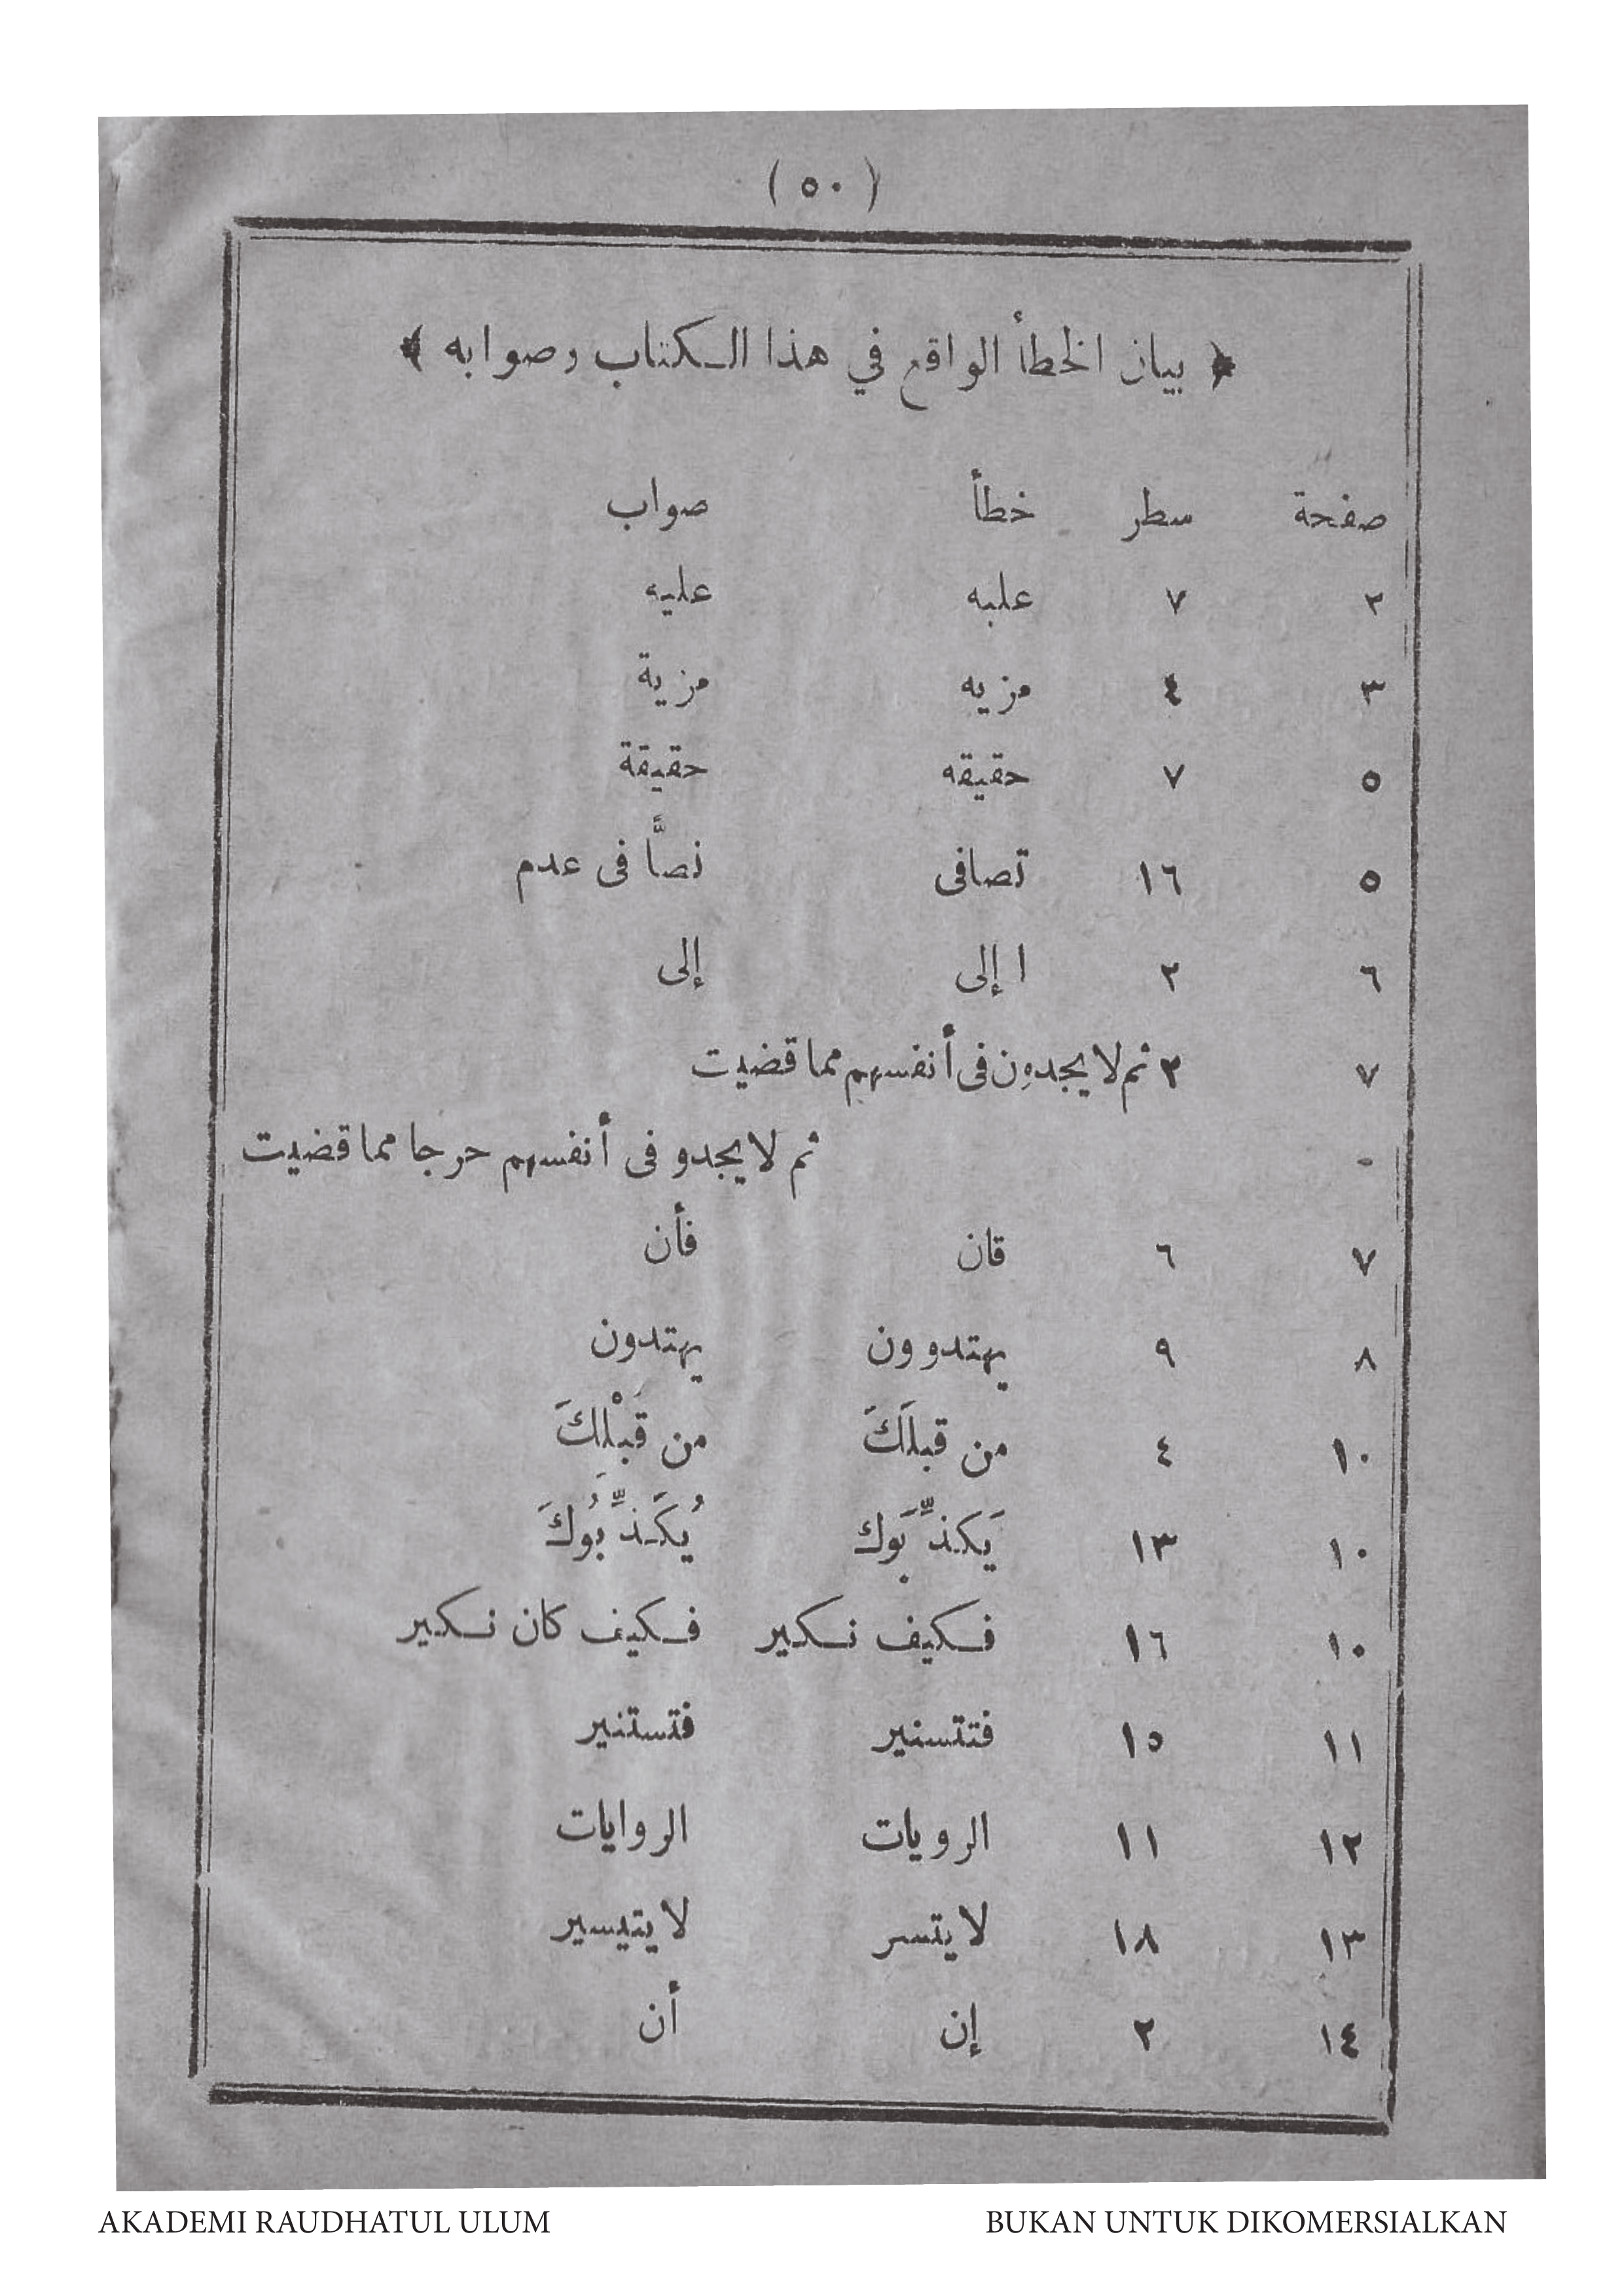 ( ٥٠ )
﴿ بيان الخطأ الواقع في هذا الكتاب وصوابه ﴾
صفحة سطر خطأ صواب
٢ ٧ علبه عليه
٣ ٤ مزيه مزية
٥ ٧ حقيقه حقيقة
٥ ١٦ تصافى نصاًّ فى عدم
٦ ٢ ا إلى إلى
٧ ٣ ثم لا يجدون فى أنفسهم مما قضيت
- ثم لا يجدو فى أنفسهم حرجا مما قضيت
٧ ٦ قان فأن
٨ ٩ يهتدوون يهتدون
١٠ ٤ من قبلَكَ من قَبْلِكَ
١٠ ١٣ يَكذِّبَوك يُكَذِّبُوكَ
١٠ ١٦ فكيف نكير فكيف كان نكير
١١ ١٥ فتتسنير فتستنير
١٢ ١١ الرويات الروايات
١٣ ١٨ لا يتسر لا يتيسير
١٤ ٢ إن أن
AKADEMI RAUDHATUL ULUM BUKAN UNTUK DIKOMERSIALKAN